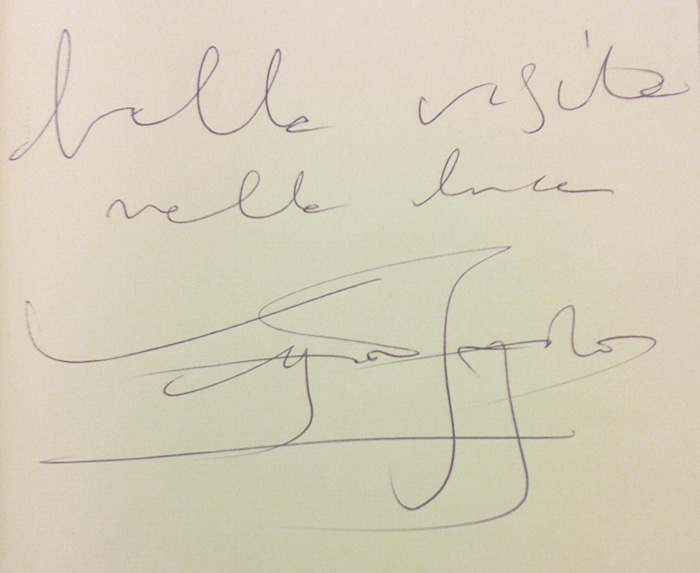 bella visita
nella luce